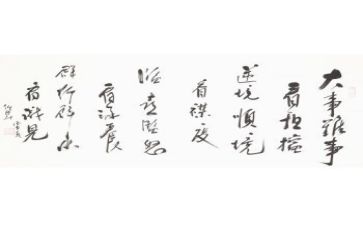 大事難事
看担當
逆境順境
看襟度
臨喜臨怒
看涵養
群行群止
看識見